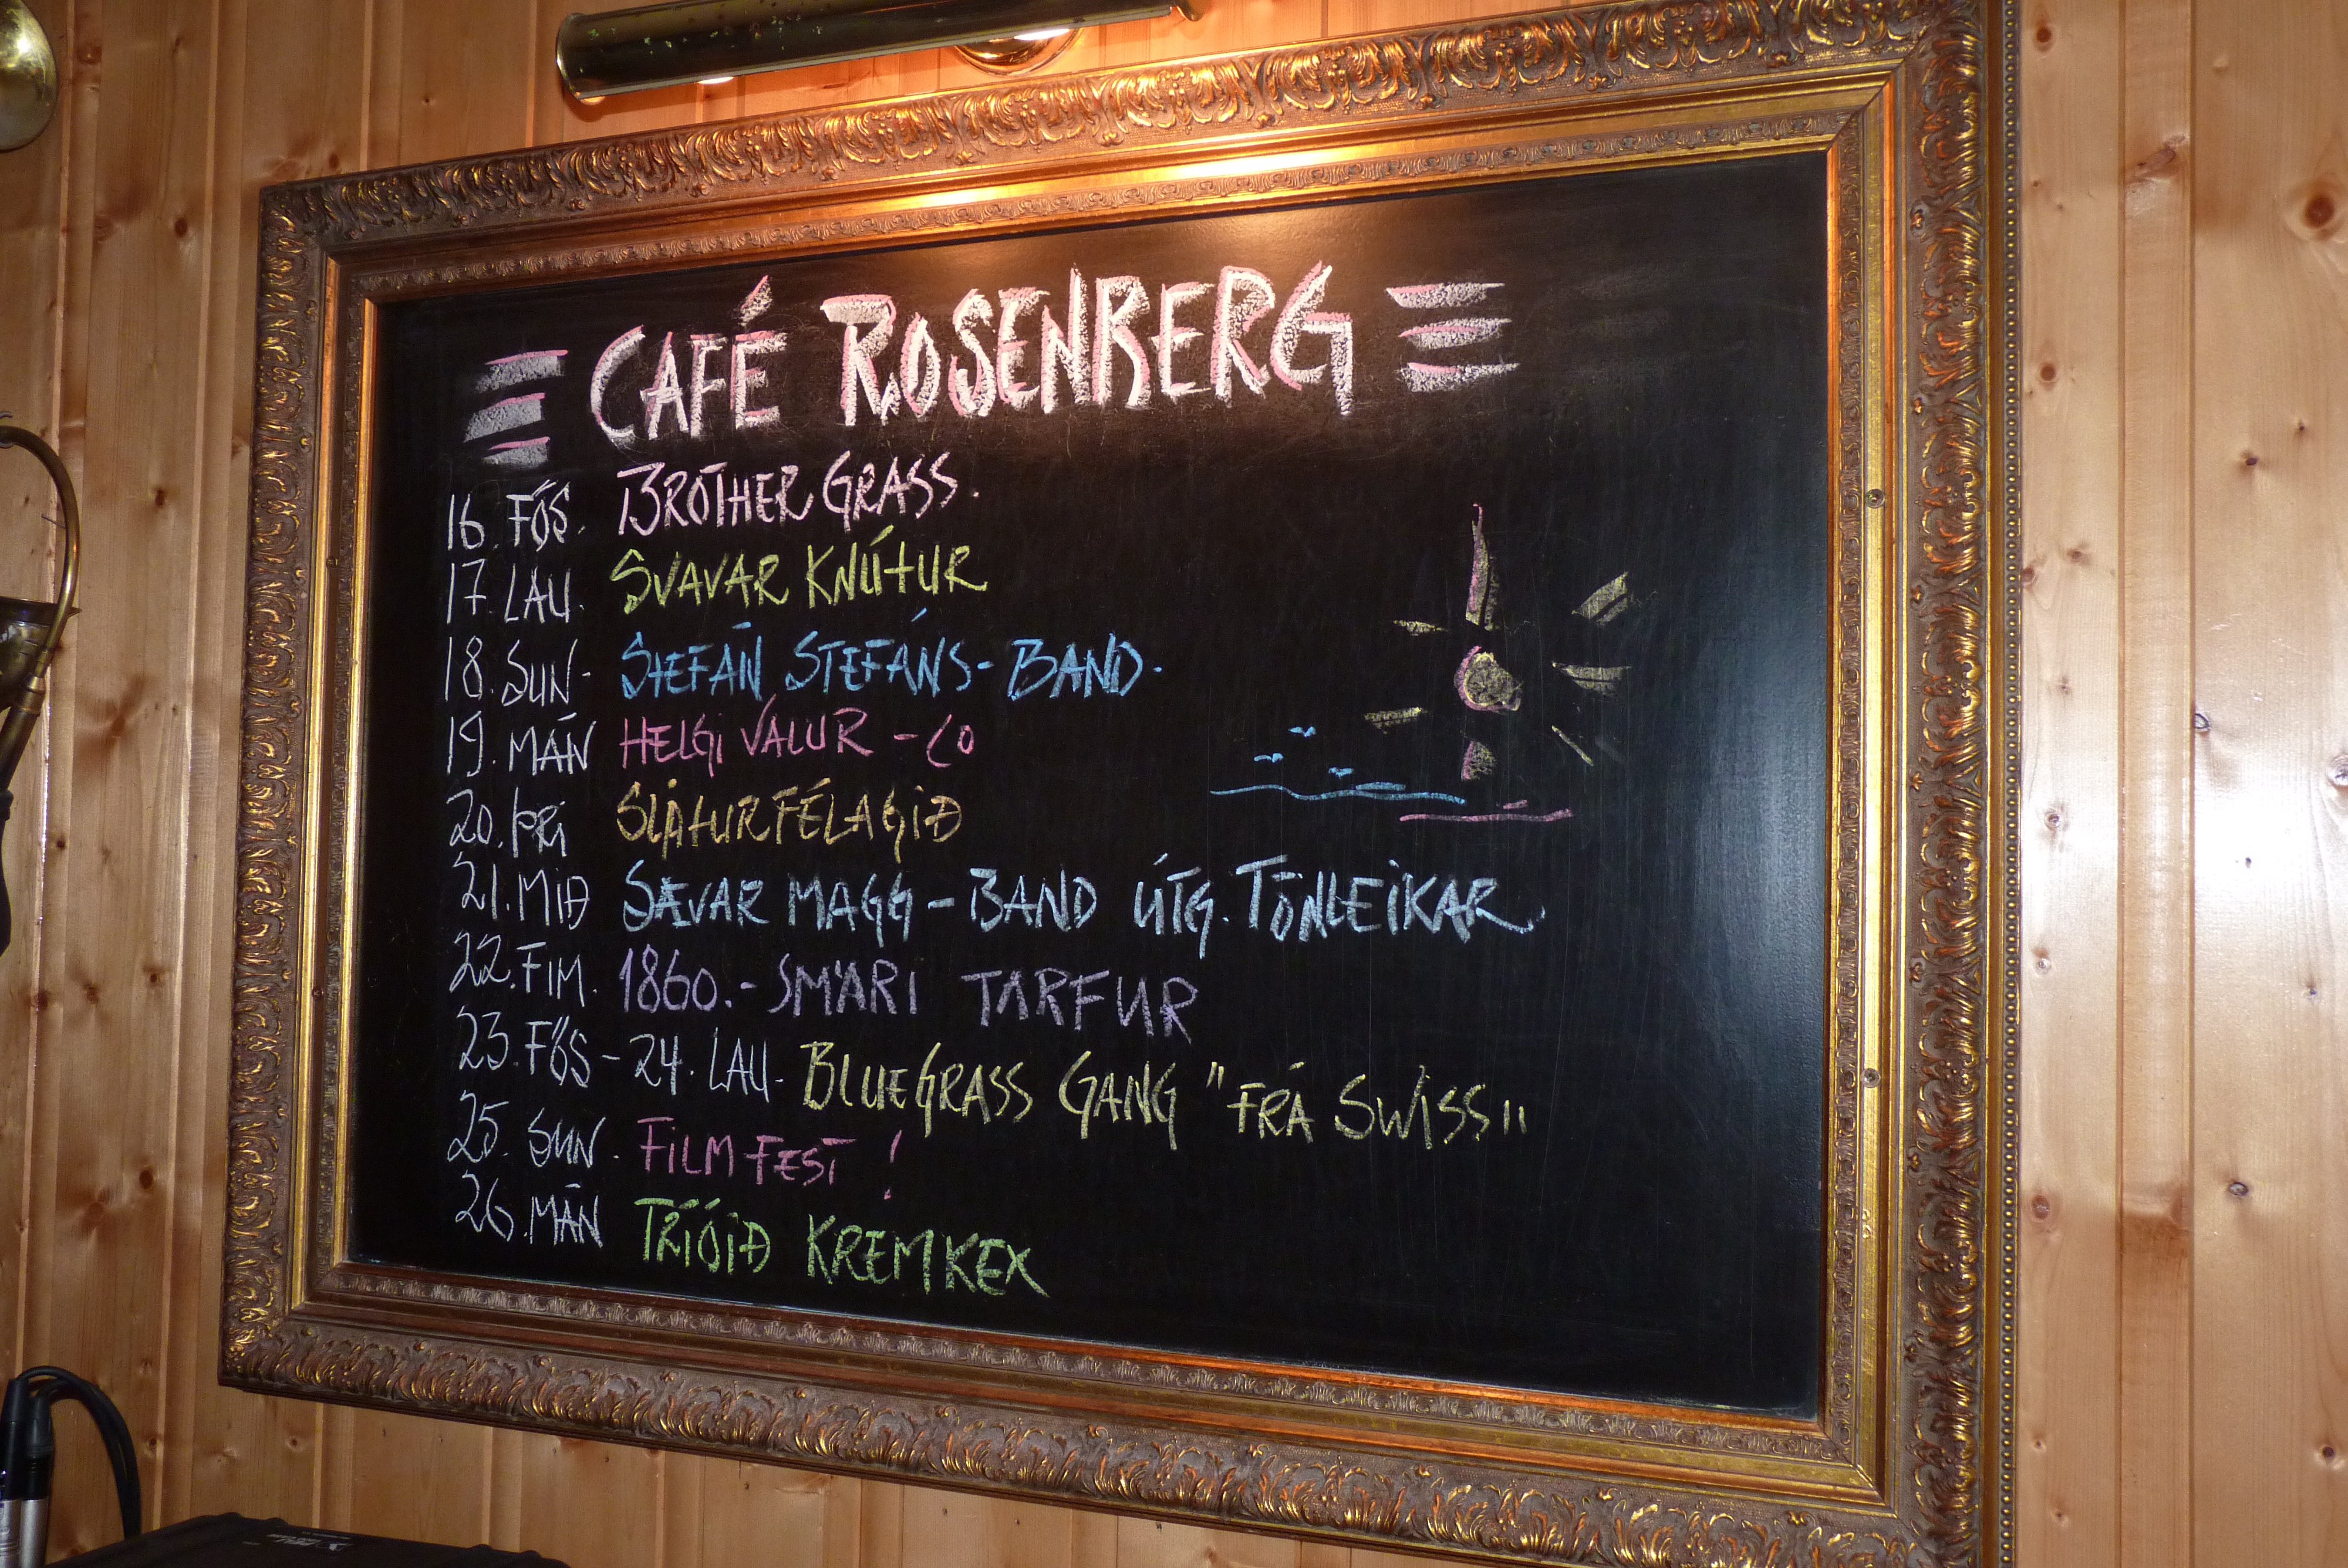 CAFÉ ROSENBERG
16. FÖS. BROTHER GRASS.
17. LAU. SVAVAR KNÚTUR
18. SUN- STEFÁN STEFÁNS- BAND.
19. MÁN HELGI VALUR - CO
20. ÞRI SLÁTURFÉLAGIÐ
21. MIÐ SÆVAR MAGG - BAND ÚTG. TÓNLEIKAR
22. FIM. 1860.- SMÁRI TARFUR
23. FÖS - 24. LAU. BLUEGRASS GANG "FRÁ SWISS"
25. SUN. FILM FEST !
26. MÁN TRÍÓIÐ KREMKEX